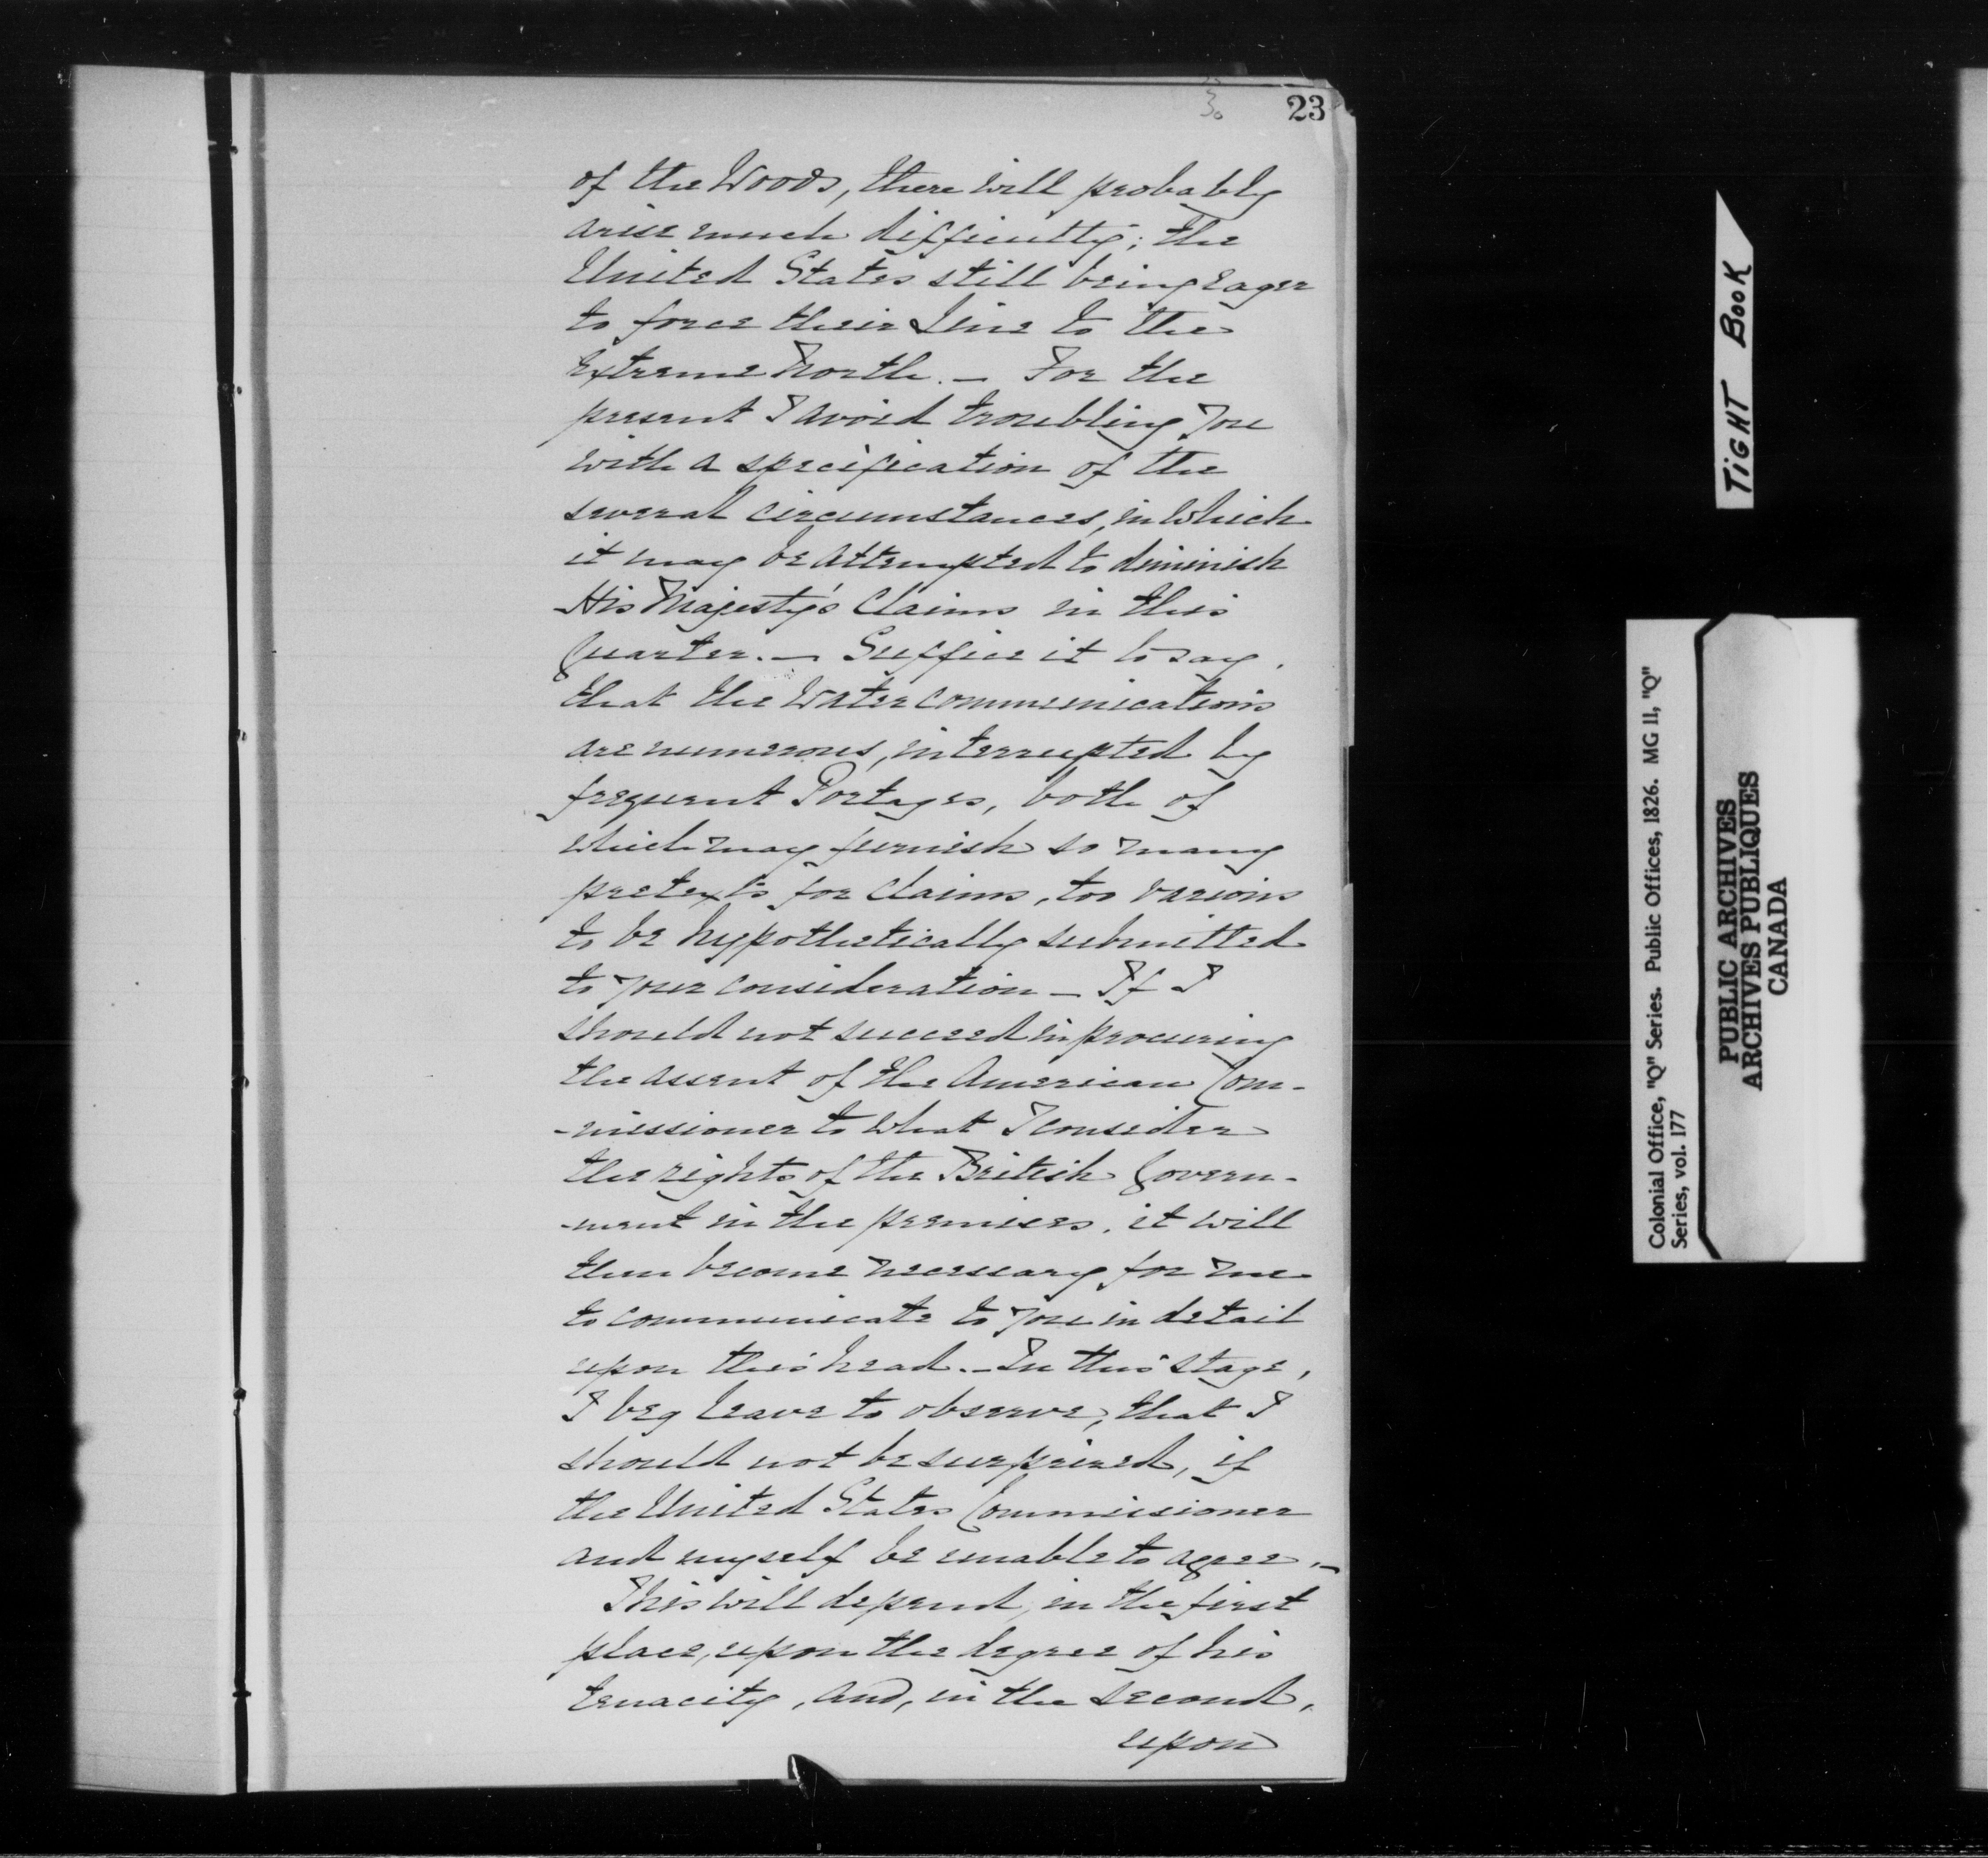 23
of the Woods, there will probably
arise much difficulty; the
United States still being eager
to force their Line to the
extreme North. — For the
present I avoid troubling You
with a specification of the
several circumstances, in which
it may be attempted to diminish
His Majesty's Claims in this
Quarter. — Suffice it to say,
that the Water communications
are numerous, interrupted by
frequent Portages, both of
which may furnish so many
pretexts for Claims, too various
to be hypothetically submitted
to your consideration — If I
should not succeed in procuring
the assent of the American Com-
-missioner to what I consider
the rights of the British Govern-
-ment in the premises, it will
then become necessary for me
to communicate to you in detail
upon this head. — In this stage,
I beg leave to observe, that I
should not be surprized, if
the United States Commissioner
and myself be unable to agree. —
This will depend, in the first
place, upon the degree of his
tenacity, and, in the second,
upon
TIGHT BOOK
Colonial Office, "Q" Series. Public Offices, 1826. MG 11, "Q"
Series, vol. 177
PUBLIC ARCHIVES
ARCHIVES PUBLIQUES
CANADA